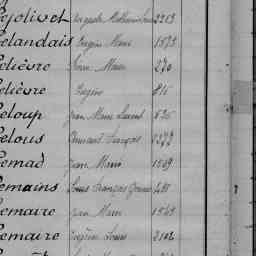 Lejolivet Auguste Mathurin 2213
Lelandais Eugène Marie 1573
Lelièvre Marie 270
Lelièvre Eugène 816
Leloup Jean Marie Laurent 535
Lelous François 5277
Lemad Jean Marie 1509
Lemains Louis François 481
Lemaire Jean Marie 1549
Lemaire Eugène Louis 2102